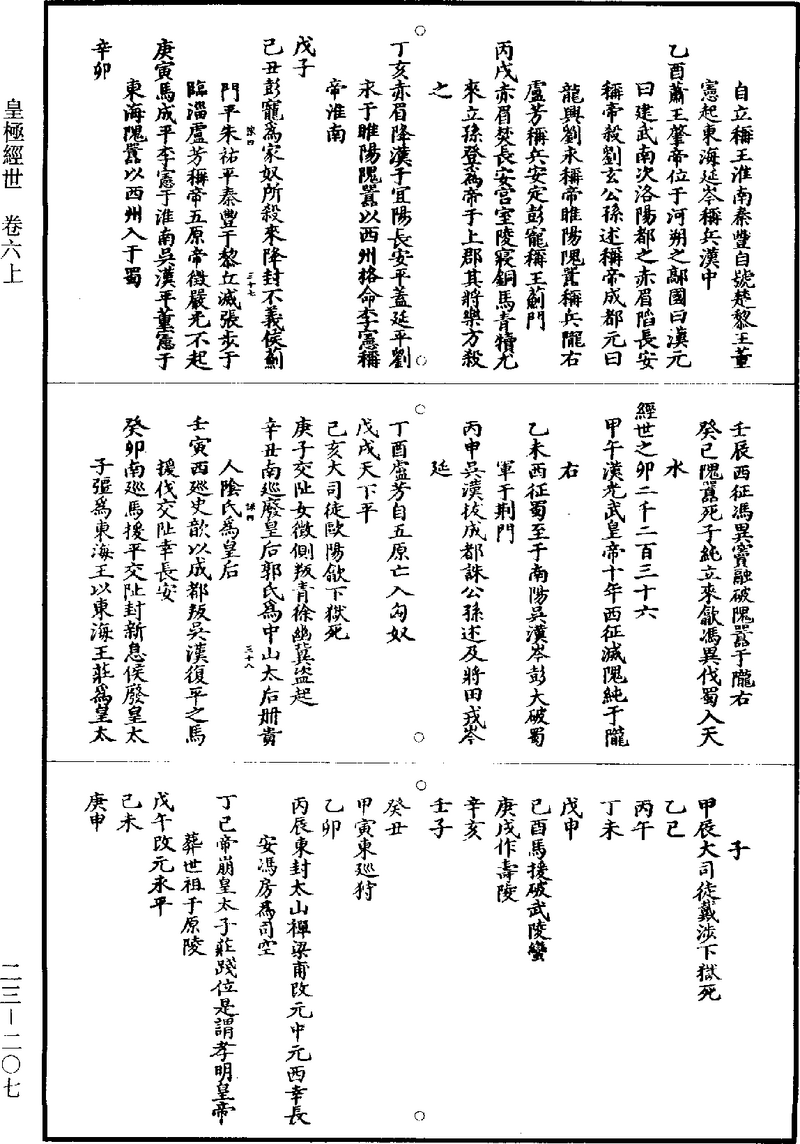 皇極經世　卷六上
自立稱王淮南秦豐自號楚黎王董
憲起東海延岑稱兵漢中
乙酉蕭王肇帝位于河朔之鄗國曰漢元
曰建武南次洛陽都之赤眉陷長安
稱帝殺劉玄公孫述稱帝成都元曰
龍興劉永稱帝睢陽隗囂稱兵隴右
盧芳稱兵安定彭寵稱王薊門
丙戌赤眉焚長安宮室陵寢銅馬青犢尤
來立孫登為帝于上郡其將樂方殺
之
丁亥赤眉降漢于宜陽長安平蓋延平劉
永于睢陽隗囂以西州格命李憲稱
帝淮南
戊子
己丑彭寵為家奴所殺來降封不義侯薊
門平朱祐平秦豐于黎丘滅張步于
臨淄盧芳稱帝五原帝徵嚴光不起
庚寅馬成平李憲于淮南吳漢平董憲于
東海隗囂以西州入于蜀
辛卯
三十七
壬辰西征馮異竇融破隗囂于隴右
癸巳隗囂死子純立來歙馮異伐蜀入天
水
經世之卯二千二百三十六
甲午漢光武皇帝十年西征滅隗純于隴
右
乙未西征蜀至于南陽吳漢岑彭大破蜀
軍于荆門
丙申吳漢拔成都誅公孫述及將田戎岑
延
丁酉盧芳自五原亡入匈奴
戊戌天下平
己亥大司徒歐陽歙下獄死
庚子交阯女徵側叛青徐幽冀盗起
辛丑南巡廢皇后郭氏為中山太后册貴
人陰氏為皇后
壬寅西巡史歆以成都叛吳漢復平之馬
援伐交阯幸長安
癸卯南巡馬援平交阯封新息侯廢皇太
子彊為東海王以東海王莊為皇太
三十八
子
甲辰大司徒戴涉下獄死
乙巳
丙午
丁未
戊申
己酉馬援破武陵蠻
庚戌作壽陵
辛亥
壬子
癸丑
甲寅東巡狩
乙卯
丙辰東封太山禪梁甫改元中元西幸長
安馮房為司空
丁巳帝崩皇太子莊踐位是謂孝明皇帝
葬世祖于原陵
戊午改元永平
己未
庚申
二三－二〇七